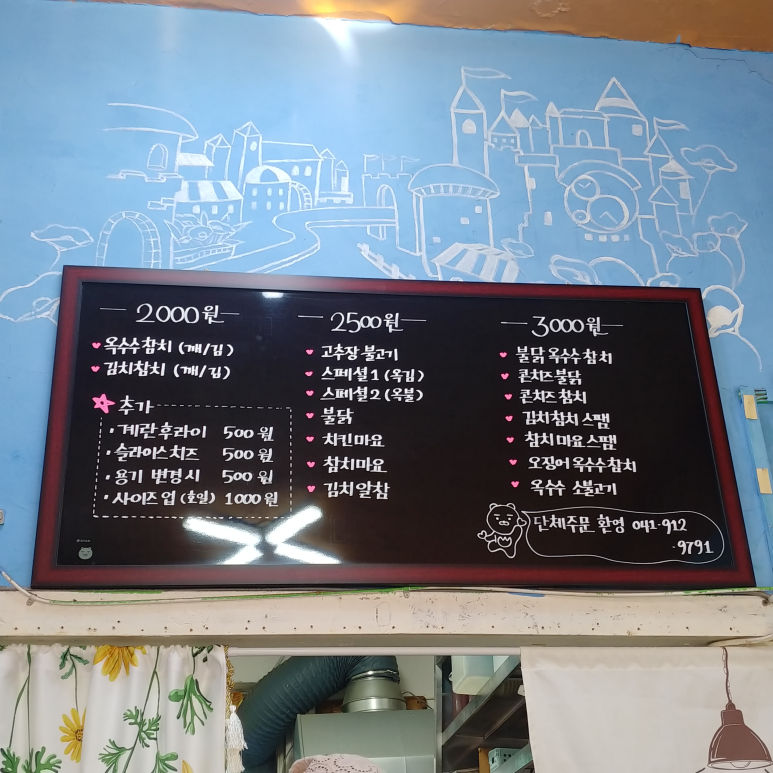 2000원
옥수수참치 (깨/김)
김치참치 (깨/김)
추가
· 계란후라이 500원
· 슬라이스치즈 500원
· 용기 변경시 500원
· 사이즈 업 (호일) 1000원
2500원
고추장 불고기
스페셜1 (옥김)
스페셜2 (옥불)
불닭
치킨마요
참치마요
김치알참
3000원
불닭옥수수참치
콘치즈불닭
콘치즈참치
김치참치스팸
참치마요스팸
오징어옥수수참치
옥수수 소불고기
단체주문 환영 041·912
·9791